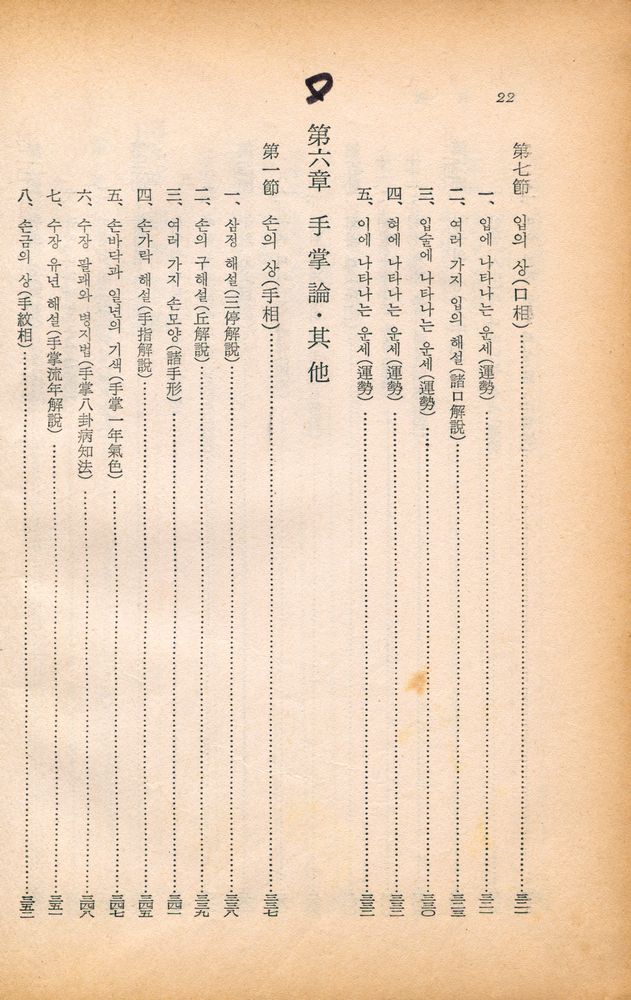 22
第七節 입의 상(口相)……三二一
一、입에 나타나는 운세(運勢)……三二一
二、여러 가지 입의 해설(諸口解說)……三二三
三、입술에 나타나는 운세(運勢)……三三〇
四、혀에 나타나는 운세(運勢)……三三二
五、이에 나타나는 운세(運勢)……三三三
第六章 手掌論·其他
第一節 손의 상(手相)……三三七
一、삼정 해설(三停解說)……三三八
二、손의 구해설(丘解說)……三三九
三、여러 가지 손모양(諸手形)……三四一
四、손가락 해설(手指解說)……三四五
五、손바닥과 일년의 기색(手掌一年氣色)……三四七
六、수장 팔괘와 병지법(手掌八卦病知法)……三四八
七、수장 유년 해설(手掌流年解說)……三五一
八、손금의 상(手紋相)……三五三